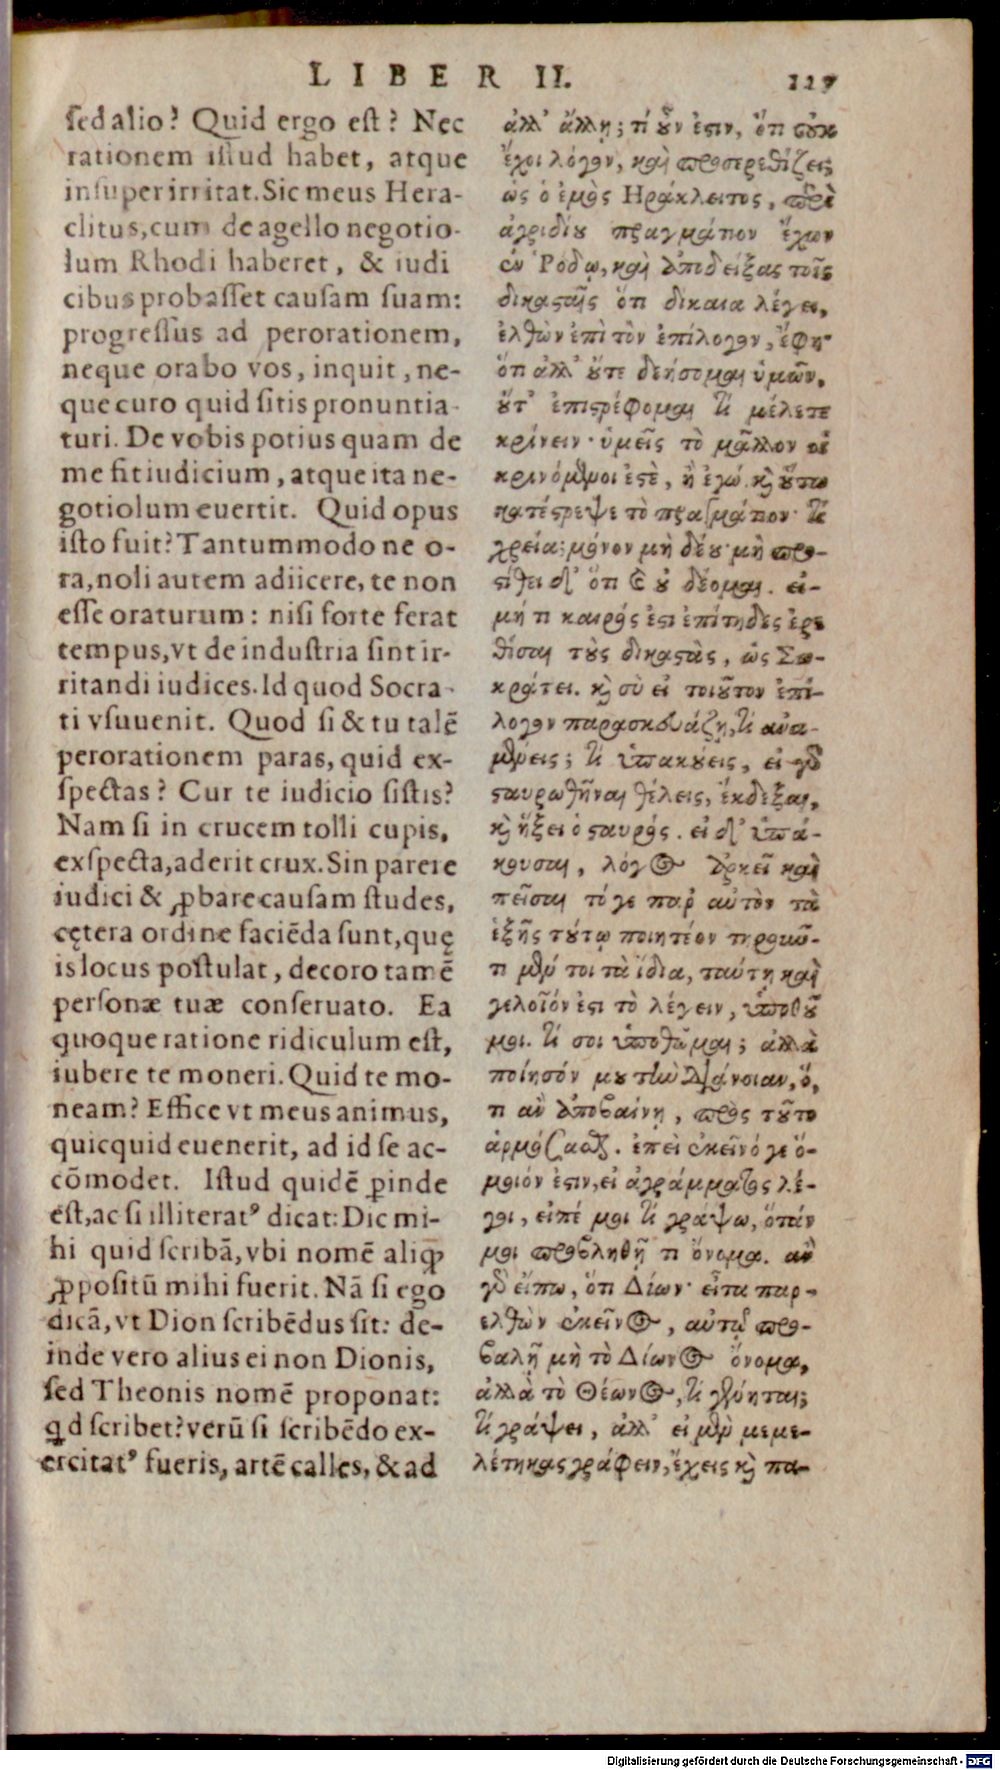 LIBER II. 127
sed alio? Quid ergo est? Nec
rationem istud habet, atque
insuper irritat. Sic meus Hera-
clitus, cum de agello negotio-
lum Rhodi haberet, & iudi
cibus probasset causam suam:
progressus ad perorationem,
neque orabo vos, inquit, ne-
que curo quid sitis pronuntia-
turi. De vobis potius quam de
me fit iudicium, atque ita ne-
gotiolum euertit. Quid opus
isto fuit? Tantummodo ne o-
ra, noli autem adiicere, te non
esse oraturum: nisi forte ferat
tempus, vt de industria sint ir-
ritandi iudices. Id quod Socra-
ti vsuuenit. Quod si & tu talē
perorationem paras, quid ex-
spectas? Cur te iudicio sistis?
Nam si in crucem tolli cupis,
exspecta, aderit crux. Sin parere
iudici & ꝓbare causam studes,
cętera ordine faciēda sunt, quę
is locus postulat, decoro tamē
personæ tuæ conseruato. Ea
quoque ratione ridiculum est,
iubere te moneri. Quid te mo-
neam? Effice vt meus animus,
quicquid euenerit, ad id se ac-
cōmodet. Istud quidē ꝑinde
est, ac si illiteratꝰ dicat: Dic mi-
hi quid scribā, vbi nomē aliqđ
ꝓpositū mihi fuerit. Nā si ego
dicā, vt Dion scribēdus sit: de-
inde vero alius ei non Dionis,
sed Theonis nomē proponat:
qd scribet? verū si scribēdo ex-
ercitatꝰ fueris, artē calles, & ad
ἀλλ' ἄλλῃ; τί οὖν ἐστιν, ὅτι οὐκ
ἔχει λόγον, καὶ προσερεθίζεις
ὡς ὁ ἐμὸς Ἡράκλειτος, περὶ
ἀγριδίου πραγμάτιον ἔχων
ἐν Ῥόδῳ, καὶ ἀποδείξας τοῖς
δικασταῖς ὅτι δίκαια λέγει,
ἐλθὼν ἐπὶ τὸν ἐπίλογον, ἔφη·
ὅτι ἀλλ' οὔτε δεήσομαι ὑμῶν,
οὔτ' ἐπιστρέφομαι τί μέλετε
κρίνειν· ὑμεῖς τὸ μᾶλλον οἱ
κρινόμενοι ἐστὲ, ἢ ἐγώ. καὶ οὕτω
κατέστρεψε τὸ πραγμάτιον· τί
χρεία; μόνον μὴ δέου· μὴ προ-
στίθει δ' ὅτι καὶ οὐ δέομαι. εἰ-
μή τι καιρός ἐστι ἐπίτηδες ἐρε
θίσαι τοὺς δικαστὰς, ὡς Σω-
κράτει. καὶ σὺ εἰ τοιοῦτον ἐπί-
λογον παρασκευάζῃ, τί ἀνα-
μένεις; τί ὑπακούεις, εἰ γὰρ
σταυρωθῆναι θέλεις, ἔκδεξαι,
καὶ ἥξει ὁ σταυρός. εἰ δ' ὑπά-
κουσαι, λόγος ἀρκεῖ καὶ
πεῖσαι τό γε παρ' αὐτὸν τὰ
ἑξῆς τούτῳ ποιητέον τηροῦν-
τι μέν τοι τὰ ἴδια, ταύτῃ καὶ
γελοῖόν ἐστι τὸ λέγειν, ὑποθοῦ
μοι. τί σοι ὑποθῶμαι; ἀλλὰ
ποίησόν μου τὴν διάνοιαν, ὅ,
τι ἂν ἀποβαίνῃ, πρὸς τοῦτο
ἁρμόζασθαι. ἐπεὶ ἐκεῖνό γε ὅ-
μοιόν ἐστιν, εἰ ἀγράμματος λέ-
γοι, εἰπέ μοι τί γράψω, ὅταν
μοι προβληθῇ τι ὄνομα. ἂν
γὰρ εἴπω, ὅτι Δίων· εἶτα παρ-
ελθὼν ἐκεῖνος, αὐτῷ προ-
βαλῇ μὴ τὸ Δίωνος ὄνομα,
ἀλλὰ τὸ Θέωνος, τί γένηται;
τί γράψει, ἀλλ' εἰ μὲν μεμε-
λέτηκας γράφειν, ἔχεις καὶ πα-
Digitalisierung gefördert durch die Deutsche Forschungsgemeinschaft - DFG